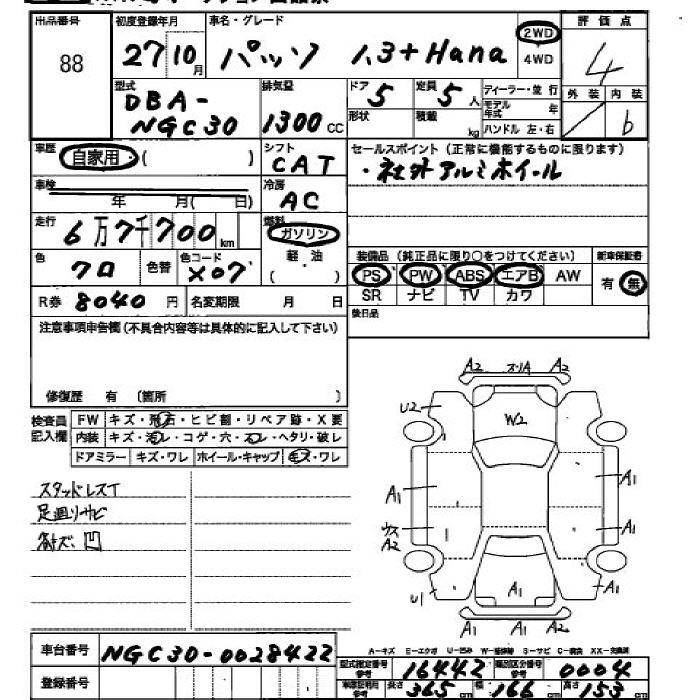 出品番号
88
初度登録年月
27 10月
車名・グレード
パッソ 1.3+Hana
2WD
4WD
評価点
4
外装 内装
b
型式
DBA-
NGC30
排気量
1300 CC
ドア
5
定員
5人
形状
積載
kg
ディーラー・並行
モデル年式 年
ハンドル 左・右
車歴
自家用・( )
シフト
CAT
セールスポイント (正常に機能するものに限ります)
・社外アルミホイール
車検
年 月( 日)
冷房
AC
走行
6万7千700km
燃料
ガソリン
軽・油
( )
色
クロ
色替
色コード
X07
装備品 (純正品に限り○をつけてください)
新車保証書
PS PW ABS エアB AW
有 無
SR ナビ TV カワ
R券 8040円
名変期限 月 日
後日品
注意事項申告欄(不具合内容等は具体的に記入して下さい)
修復歴 有 〔箇所 〕
検査員記入欄
FW キズ・飛石・ヒビ割・リペア跡・X要
内装 キズ・汚レ・コゲ・穴・スレ・ヘタリ・破レ
ドアミラー キズ・ワレ ホイール・キャップ キズ・ワレ
スタッドレスT
足廻りサビ
各キズ、凹
A2 スリA A2
U2
W2
A1
A1
A1
ウス
A2
A1
U1
A1
A1
A1 A1
車台番号
NGC30-0028422
登録番号
A-キズ E-エクボ U-凹み W-補修跡 S-サビ C-腐食 XX-交換済
型式指定番号
16442
類別区分番号
0004
車庫証明用参考
長さ 365cm
幅 166cm
高さ 153cm